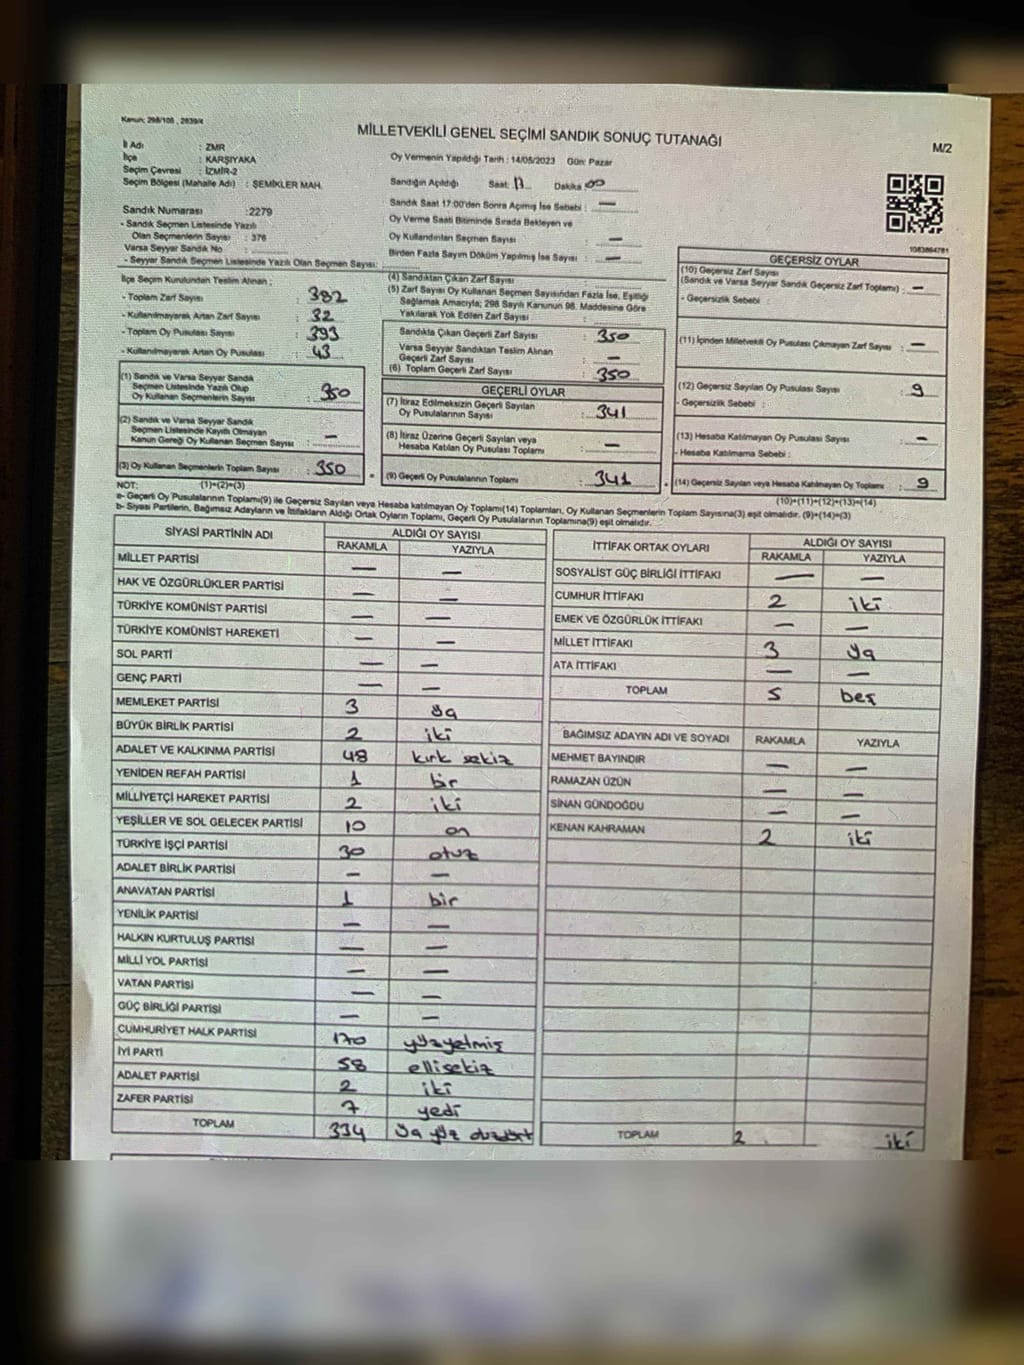 Kanun: 298/105 , 2839/4
MİLLETVEKİLİ GENEL SEÇİMİ SANDIK SONUÇ TUTANAĞI
M/2
İl Adı : ZMR
İlçe : KARŞIYAKA
Seçim Çevresi : İZMİR-2
Seçim Bölgesi (Mahalle Adı) : ŞEMİKLER MAH.
Oy Vermenin Yapıldığı Tarih : 14/05/2023 Gün: Pazar
Sandığın Açıldığı Saat: 17 Dakika 00
Sandık Saat 17:00'den Sonra Açılmış İse Sebebi : —
Oy Verme Saati Bitiminde Sırada Bekleyen ve
Oy Kullandırılan Seçmen Sayısı : —
Birden Fazla Sayım Döküm Yapılmış İse Sayısı : —
Sandık Numarası :2279
- Sandık Seçmen Listesinde Yazılı
Olan Seçmenlerin Sayısı : 376
Varsa Seyyar Sandık No :
- Seyyar Sandık Seçmen Listesinde Yazılı Olan Seçmen Sayısı:
1083864781
İlçe Seçim Kurulundan Teslim Alınan ;
- Toplam Zarf Sayısı : 382
- Kullanılmayarak Artan Zarf Sayısı : 32
- Toplam Oy Pusulası Sayısı : 393
- Kullanılmayarak Artan Oy Pusulası : 43
(1) Sandık ve Varsa Seyyar Sandık
Seçmen Listesinde Yazılı Olup
Oy Kullanan Seçmenlerin Sayısı : 350
(2) Sandık ve Varsa Seyyar Sandık
Seçmen Listesinde Kayıtlı Olmayan
Kanun Gereği Oy Kullanan Seçmen Sayısı : —
(3) Oy Kullanan Seçmenlerin Toplam Sayısı : 350
(4) Sandıktan Çıkan Zarf Sayısı :
(5) Zarf Sayısı Oy Kullanan Seçmen Sayısından Fazla İse, Eşitliği
Sağlamak Amacıyla; 298 Sayılı Kanunun 98. Maddesine Göre
Yakılarak Yok Edilen Zarf Sayısı :
Sandıkta Çıkan Geçerli Zarf Sayısı : 350
Varsa Seyyar Sandıktan Teslim Alınan
Geçerli Zarf Sayısı : —
(6) Toplam Geçerli Zarf Sayısı : 350
GEÇERLİ OYLAR
(7) İtiraz Edilmeksizin Geçerli Sayılan
Oy Pusulalarının Sayısı : 341
(8) İtiraz Üzerine Geçerli Sayılan veya
Hesaba Katılan Oy Pusulası Toplamı : —
(9) Geçerli Oy Pusulalarının Toplamı : 341
GEÇERSİZ OYLAR
(10) Geçersiz Zarf Sayısı
(Sandık ve Varsa Seyyar Sandık Geçersiz Zarf Toplamı) : —
- Geçersizlik Sebebi :
(11) İçinden Milletvekili Oy Pusulası Çıkmayan Zarf Sayısı : —
(12) Geçersiz Sayılan Oy Pusulası Sayısı : 9
- Geçersizlik Sebebi :
(13) Hesaba Katılmayan Oy Pusulası Sayısı : —
- Hesaba Katılmama Sebebi :
(14) Geçersiz Sayılan veya Hesaba Katılmayan Oy Toplamı : 9
NOT: (1)+(2)=(3)
(10)+(11)+(12)+(13)=(14)
a- Geçerli Oy Pusulalarının Toplamı(9) ile Geçersiz Sayılan veya Hesaba katılmayan Oy Toplamı(14) Toplamları, Oy Kullanan Seçmenlerin Toplam Sayısına(3) eşit olmalıdır. (9)+(14)=(3)
b- Siyasi Partilerin, Bağımsız Adayların ve İttifakların Aldığı Ortak Oyların Toplamı, Geçerli Oy Pusulalarının Toplamına(9) eşit olmalıdır.
SİYASİ PARTİNİN ADI ALDIĞI OY SAYISI
RAKAMLA YAZIYLA
MİLLET PARTİSİ — —
HAK VE ÖZGÜRLÜKLER PARTİSİ — —
TÜRKİYE KOMÜNİST PARTİSİ — —
TÜRKİYE KOMÜNİST HAREKETİ — —
SOL PARTİ — —
GENÇ PARTİ — —
MEMLEKET PARTİSİ 3 üç
BÜYÜK BİRLİK PARTİSİ 2 iki
ADALET VE KALKINMA PARTİSİ 48 kırk sekiz
YENİDEN REFAH PARTİSİ 1 bir
MİLLİYETÇİ HAREKET PARTİSİ 2 iki
YEŞİLLER VE SOL GELECEK PARTİSİ 10 on
TÜRKİYE İŞÇİ PARTİSİ 30 otuz
ADALET BİRLİK PARTİSİ — —
ANAVATAN PARTİSİ 1 bir
YENİLİK PARTİSİ — —
HALKIN KURTULUŞ PARTİSİ — —
MİLLİ YOL PARTİSİ — —
VATAN PARTİSİ — —
GÜÇ BİRLİĞİ PARTİSİ — —
CUMHURİYET HALK PARTİSİ 170 yüzyetmiş
İYİ PARTİ 58 ellisekiz
ADALET PARTİSİ 2 iki
ZAFER PARTİSİ 7 yedi
TOPLAM 334 üç yüz otuzdört
İTTİFAK ORTAK OYLARI ALDIĞI OY SAYISI
RAKAMLA YAZIYLA
SOSYALİST GÜÇ BİRLİĞİ İTTİFAKI — —
CUMHUR İTTİFAKI 2 iki
EMEK VE ÖZGÜRLÜK İTTİFAKI — —
MİLLET İTTİFAKI 3 üç
ATA İTTİFAKI — —
TOPLAM 5 beş
BAĞIMSIZ ADAYIN ADI VE SOYADI RAKAMLA YAZIYLA
MEHMET BAYINDIR — —
RAMAZAN ÜZÜN — —
SİNAN GÜNDOĞDU — —
KENAN KAHRAMAN 2 iki
TOPLAM 2 iki